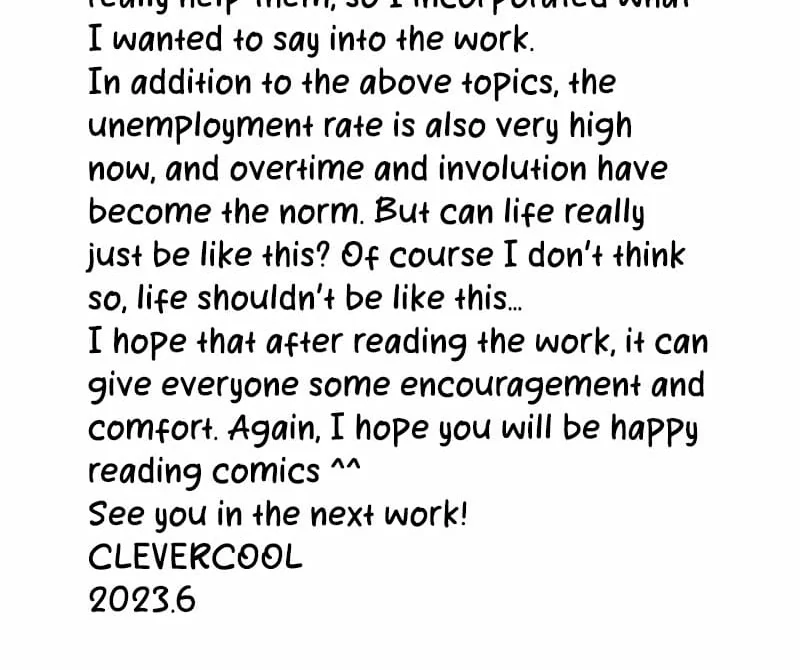 really help them, so I incorporated what
I wanted to say into the work.
In addition to the above topics, the
unemployment rate is also very high
now, and overtime and involution have
become the norm. But can life really
just be like this? Of course I don't think
so, life shouldn't be like this...
I hope that after reading the work, it can
give everyone some encouragement and
comfort. Again, I hope you will be happy
reading comics ^^
See you in the next work!
CLEVERCOOL
2023.6